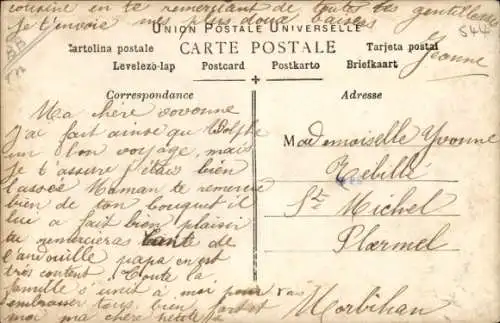 cousine en te remerciant de toutes tes gentillesses
je t'envoie mes plus doux baisers
Jeanne
UNION POSTALE UNIVERSELLE
CARTE POSTALE
Cartolina postale
Tarjeta postal
Levelezö-lap Postcard Postkarto Briefkaart
Correspondance
Adresse
Ma chère vovonne
J'ai fait ainsi qu'
un bon voyage, mais
je t'assure j'étais bien
Maman te remercie
bien de ton bouquet il
lui a fait bien plaisir
tu remercieras tante de
l'andouille papa en est
très content. Toute la
famille s'unit à moi pour vous
embrasser tous bien fort et
moi ma chère
Mademoiselle Yvonne
Rebillé
St Michel
Ploermel
Morbihan